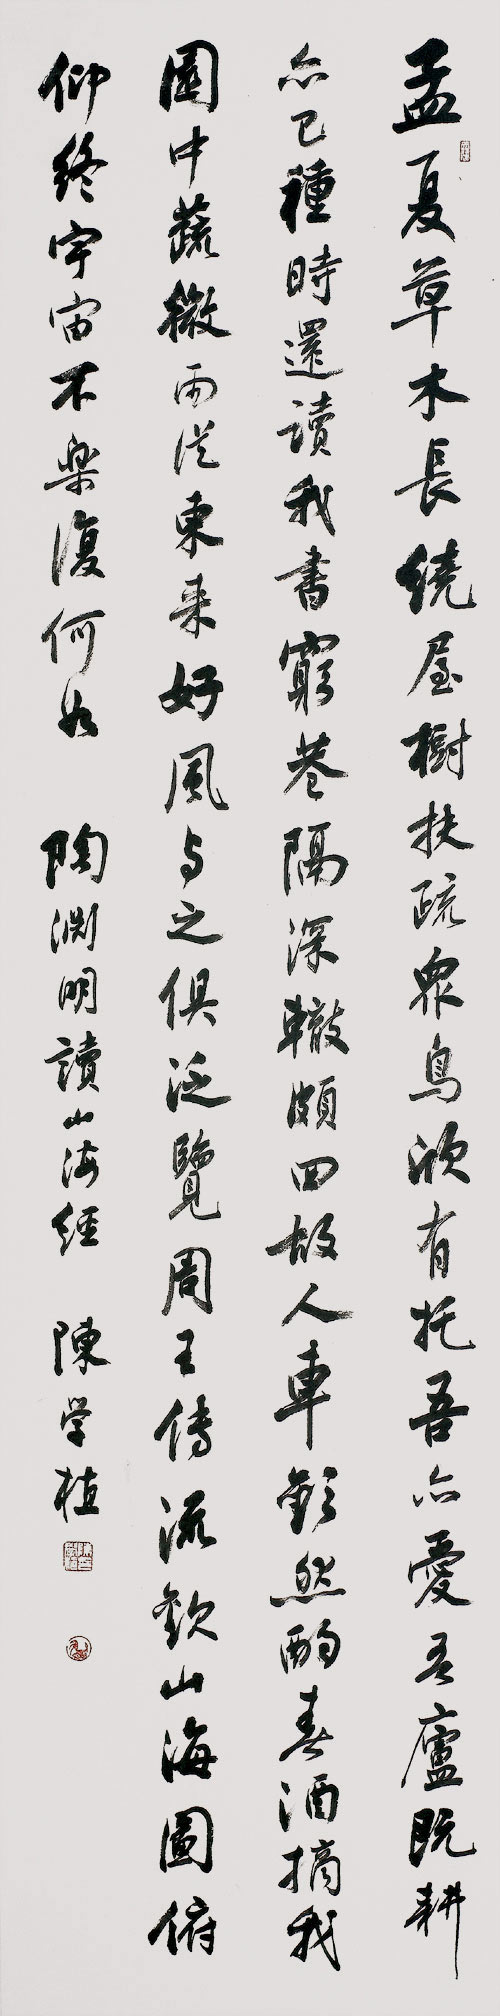 孟夏草木長繞屋樹扶疏眾鳥欣有托吾亦愛吾廬既耕
亦已種時還讀我書窮巷隔深轍頗回故人車歡然酌春酒摘我
園中蔬微雨從東来好風与之俱泛覽周王傳流觀山海圖俯
仰終宇宙不楽復何如 陶渊明讀山海經 陳学植